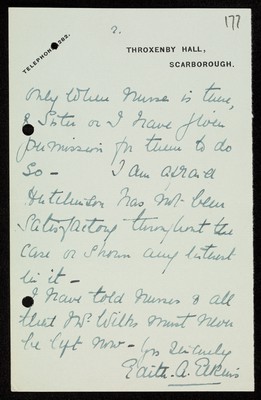 2.
177
TELEPHONE 383.
THROXENBY HALL,
SCARBOROUGH.
only when nurse is there,
& Sister or I have given
permission for them to do
so — I am afraid
Hutchinson has not been
satisfactory throughout the
case or shown any interest
in it —
I have told nurses & all
that Mr. Wilks must never
be left now — Yrs sincerely
Edith. A. Atkins